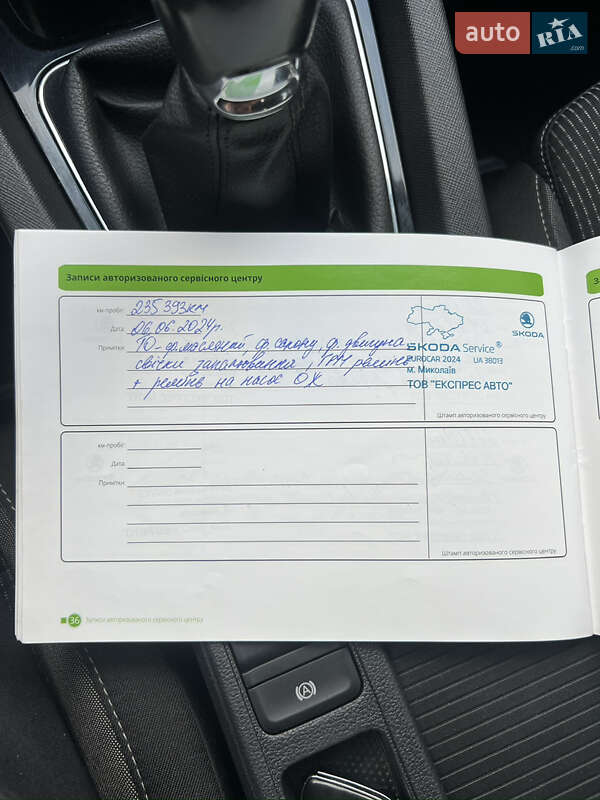 auto RIA.com
Записи авторизованого сервісного центру
З
км-пробіг: 235 393км
Дата: 06.06.2024р.
Примітки: ТО - ф. масляний, ф. салону, ф. двигуна
свічки запалювання, ГРМ ремінь
+ ремінь на насос ОХ
ŠKODA
ŠKODA Service®
EUROCAR 2024 UA 38013
м. Миколаїв
ТОВ "ЕКСПРЕС АВТО"
Штамп авторизованого сервісного центру
км-пробіг:
Дата:
Примітки:
Штамп авторизованого сервісного центру
36 Записи авторизованого сервісного центру
A